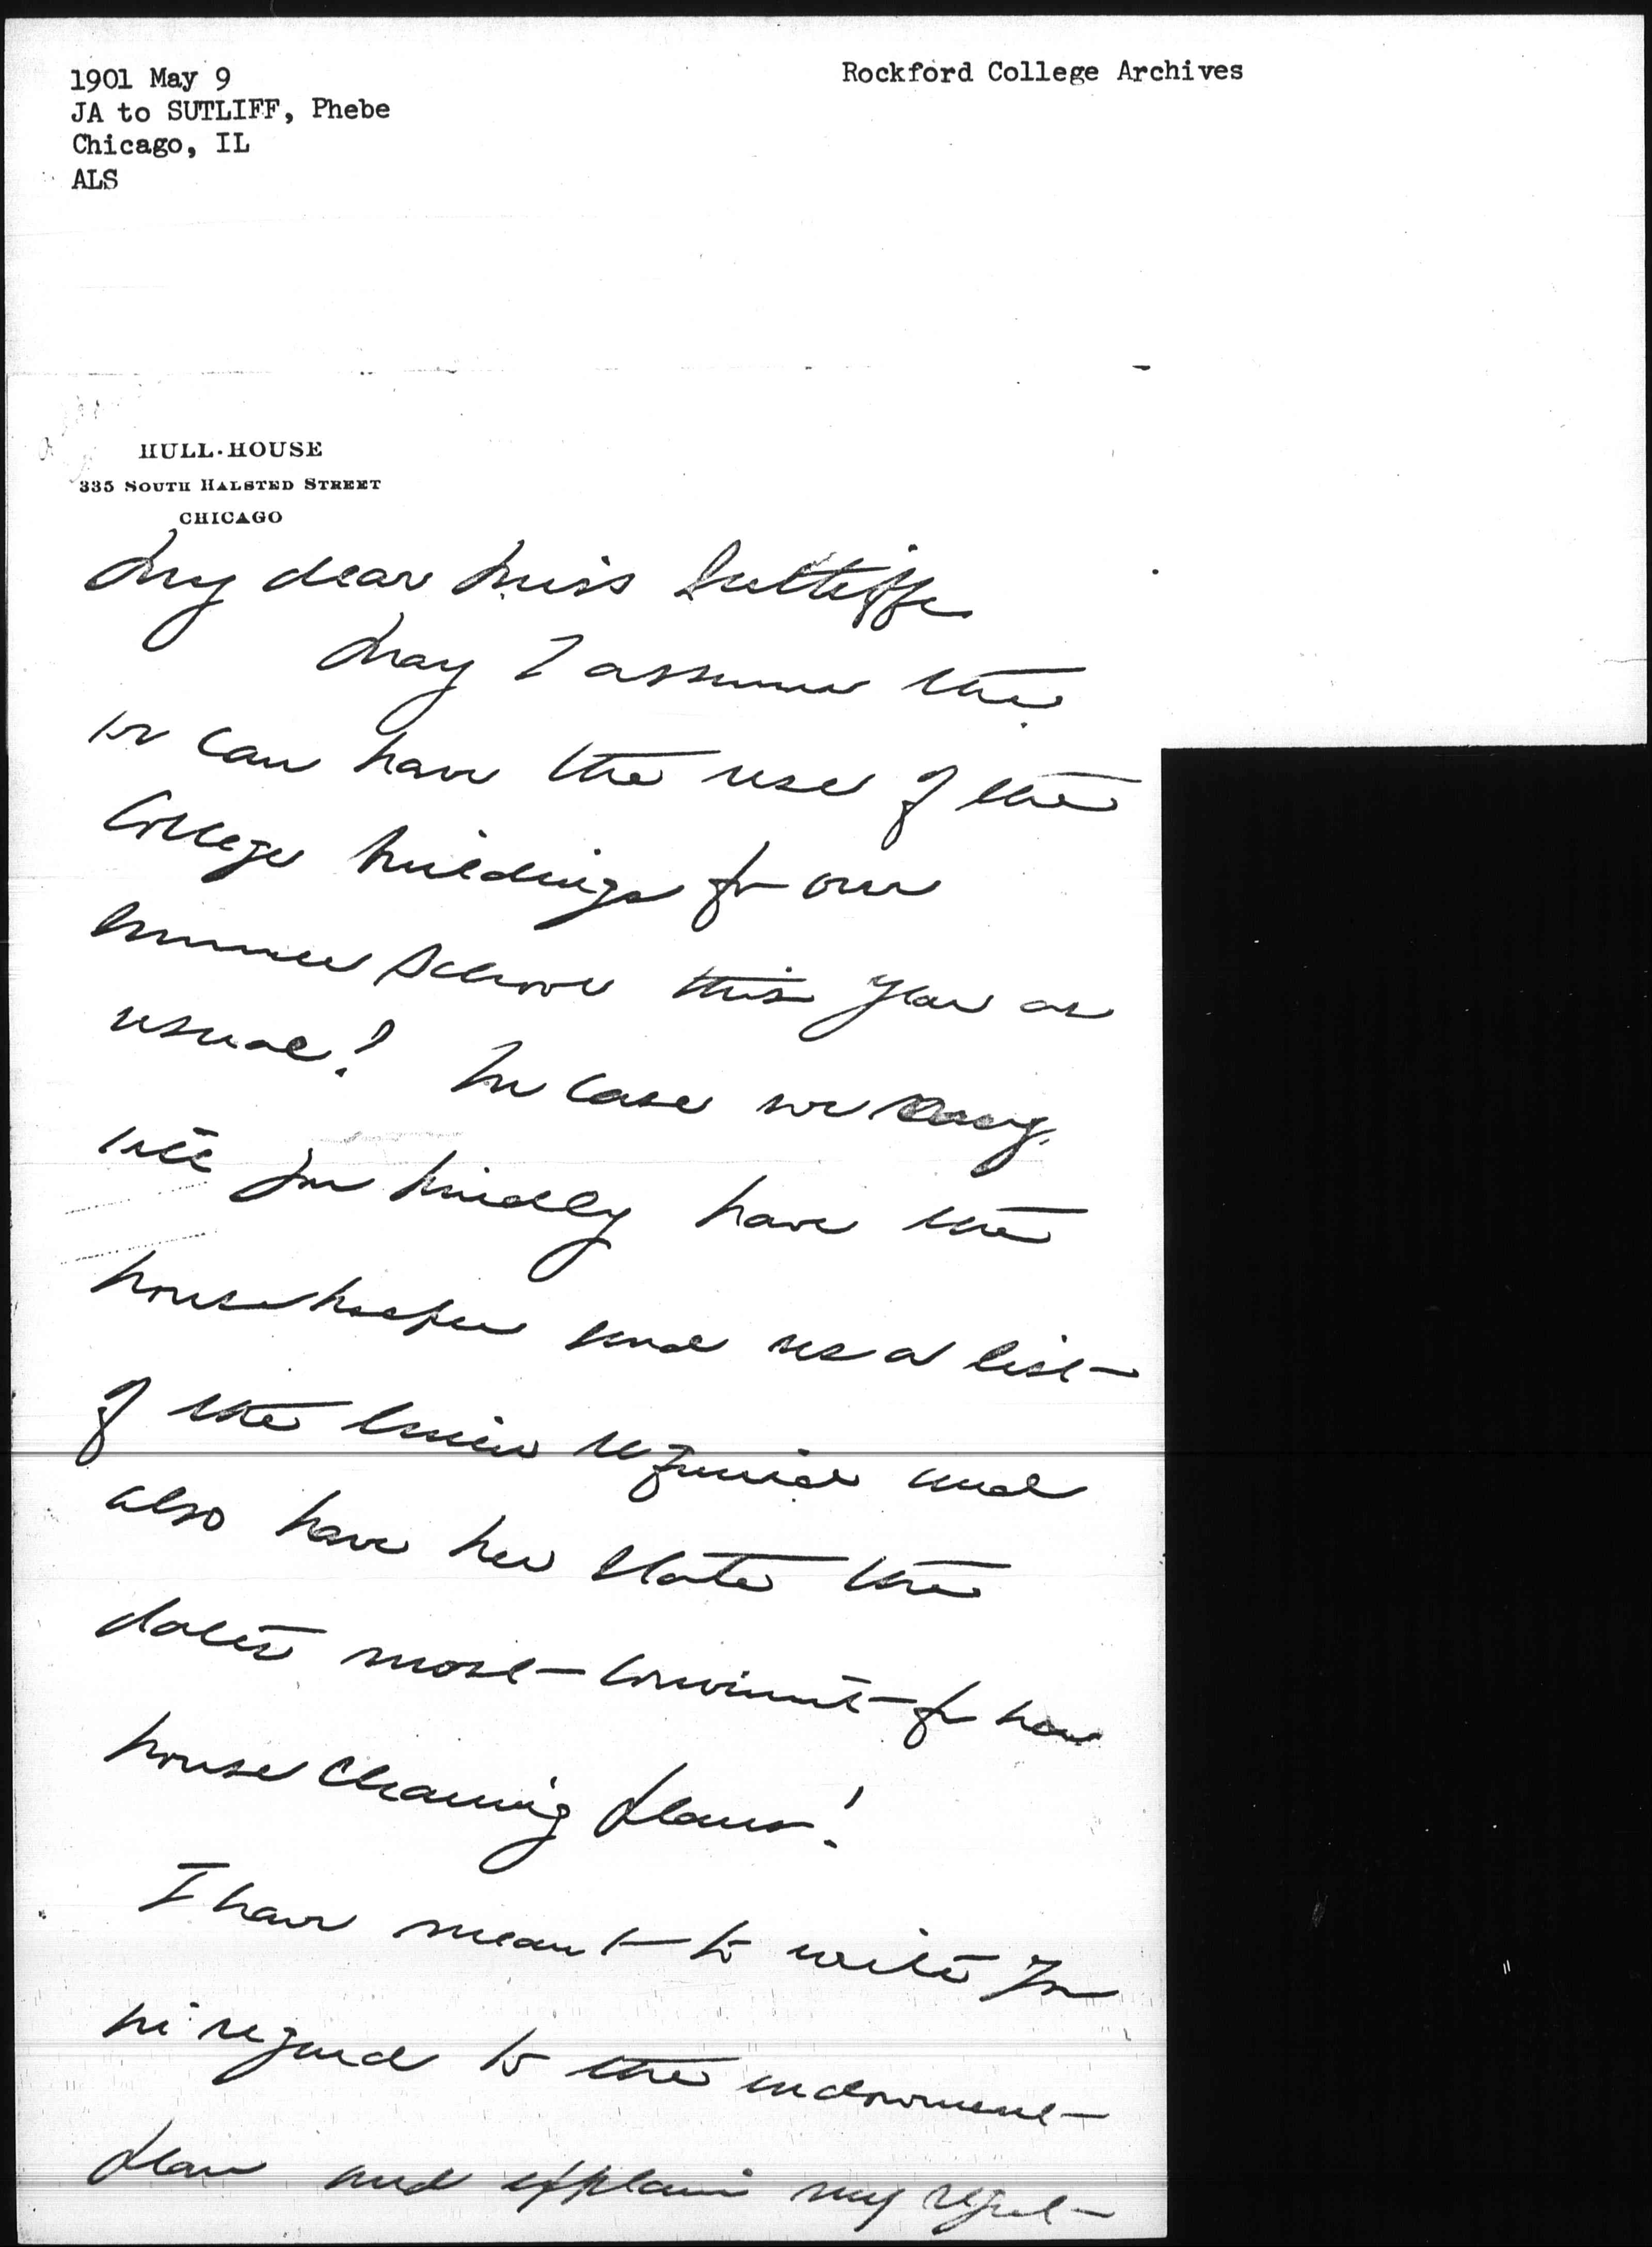 1901 May 9
JA to SUTLIFF, Phebe
Chicago, IL
ALS
Rockford College Archives
HULL·HOUSE
335 SOUTH HALSTED STREET
CHICAGO
My dear Miss Sutliffe
May I assume that
we can have the use of the
College buildings for our
Summer School this year as
usual? In case we may,
will you kindly have the
housekeeper send us a list
of the linen required and
also have her state the
dates most convenient for her
house cleaning plans?
I have meant to write you
in regard to the endowment
plan and explain my regret